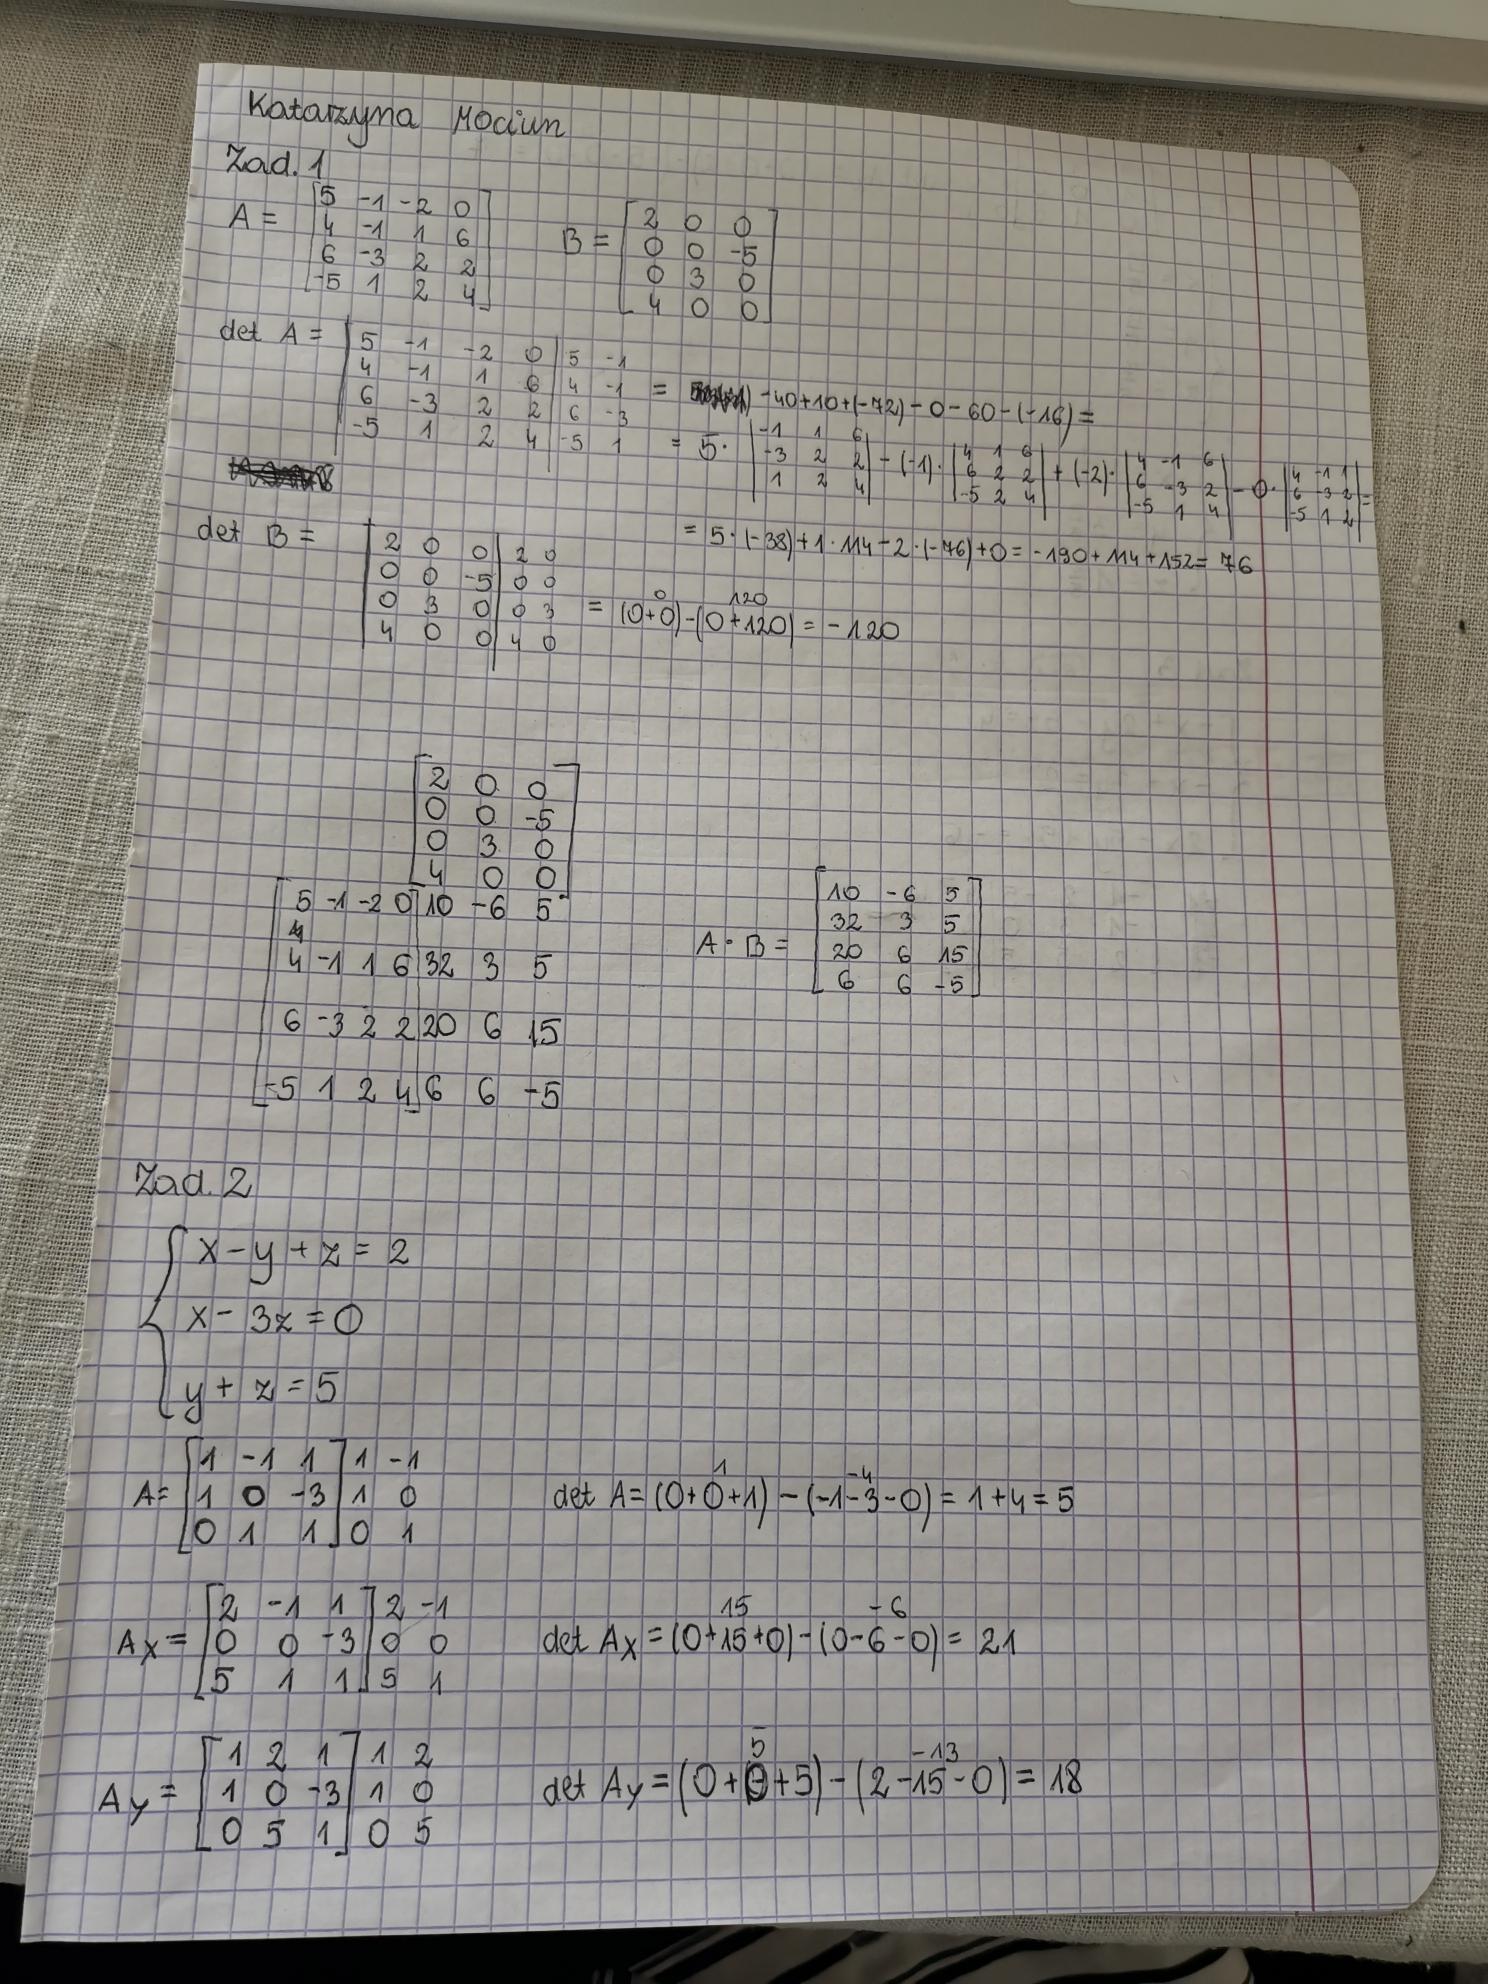 Katarzyna Mociun
Zad. 1
A = [5 -1 -2 0
4 -1 1 6
6 -3 2 2
-5 1 2 4]
B = [2 0 0
0 0 -5
0 3 0
4 0 0]
det A = |5 -1 -2 0| 5 -1
4 -1 1 6 | 4 -1
6 -3 2 2 | 6 -3
-5 1 2 4 | -5 1
= -40+10+(-72)-0-60-(-16)=
= 5· |-1 1 6
-3 2 2
1 2 4| - (-1)· |4 1 6
6 2 2
-5 2 4| + (-2)· |4 -1 6
6 -3 2
-5 1 4| - 0· |4 -1 1
6 -3 2
-5 1 2| =
= 5·(-38)+1·114-2·(-76)+0=-190+114+152=76
det B = |2 0 0| 2 0
0 0 -5 | 0 0
0 3 0 | 0 3
4 0 0 | 4 0
0 120
= (0+0)-(0+120)=-120
[2 0 0
0 0 -5
0 3 0
4 0 0]
[5 -1 -2 0] 10 -6 5
4
4 -1 1 6 32 3 5
6 -3 2 2 20 6 15
-5 1 2 4 6 6 -5
A·B = [10 -6 5
32 3 5
20 6 15
6 6 -5]
Zad. 2
{ x-y+z=2
x-3z=0
y+z=5
A= [1 -1 1] 1 -1
1 0 -3 1 0
0 1 1 0 1
1 -4
det A=(0+0+1)-(-1-3-0)=1+4=5
Ax= [2 -1 1] 2 -1
0 0 -3 0 0
5 1 1 5 1
15 -6
det Ax=(0+15+0)-(0-6-0)=21
Ay= [1 2 1] 1 2
1 0 -3 1 0
0 5 1 0 5
5 -13
det Ay=(0+0+5)-(2-15-0)=18